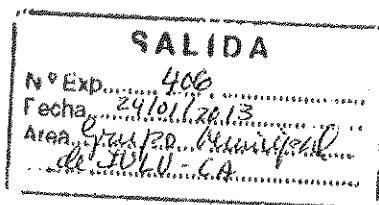 SALIDA
Nº Exp. 406
Fecha 24/01/2013
Area Grupo Municipal
de IULV-CA